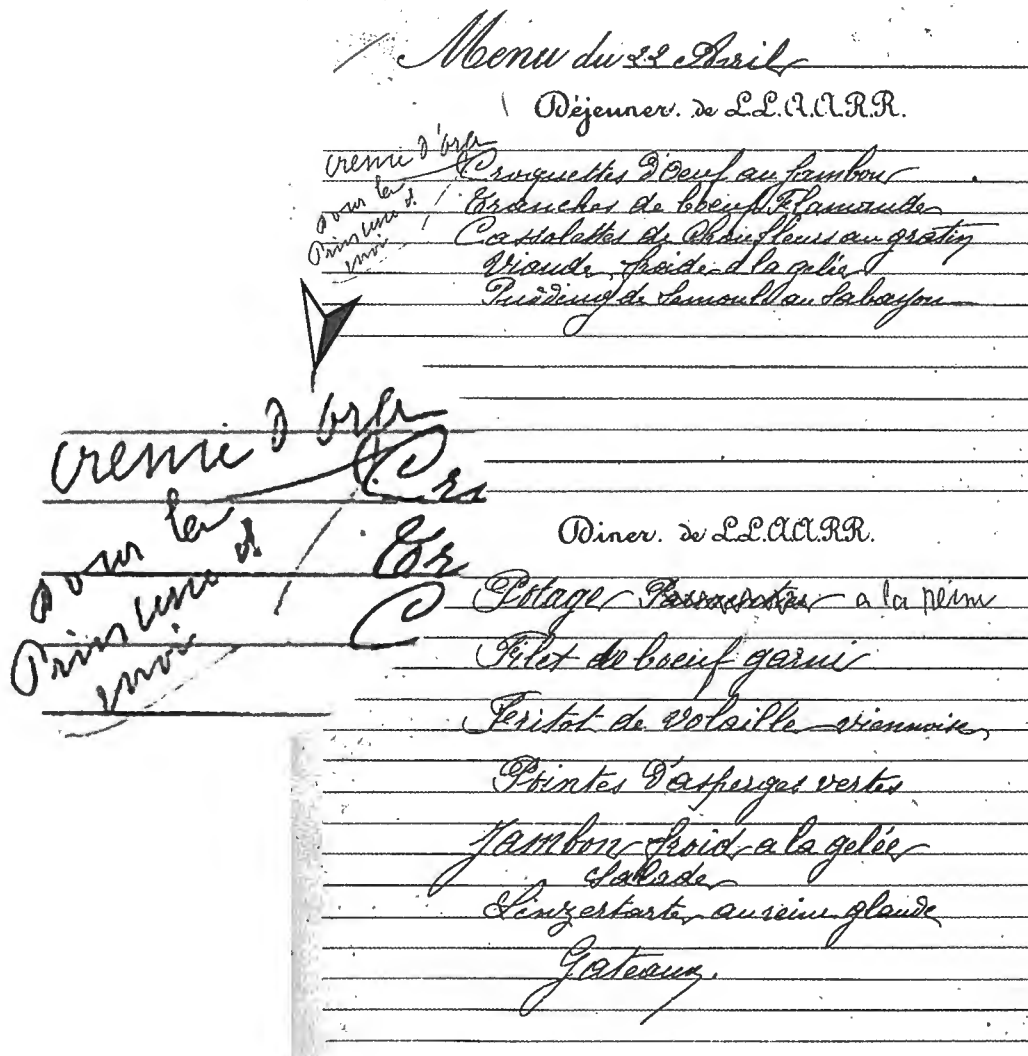 Menu du 22 Avril
Déjeuner. de L.L.A.A.R.R.
creme d'orge
pour la
Princesse et
envoi
Croquettes d'Oeuf au Jambon
Tranches de boeuf Flamande
Cassolettes de Choufleurs au gratin
Viande froide a la gelée
Pudding de Semoule au Sabayon
creme d'orge
pour la
Princesse et
envoi
Cr
Tr
C
Diner. de L.L.A.A.R.R.
Potage a la reine
Filet de boeuf garni
Feritot de Volaille viennoise
Pointes d'asperges vertes
Jambon froid a la gelée
Salade
Linzertarte au reine glaude
Gateaux.